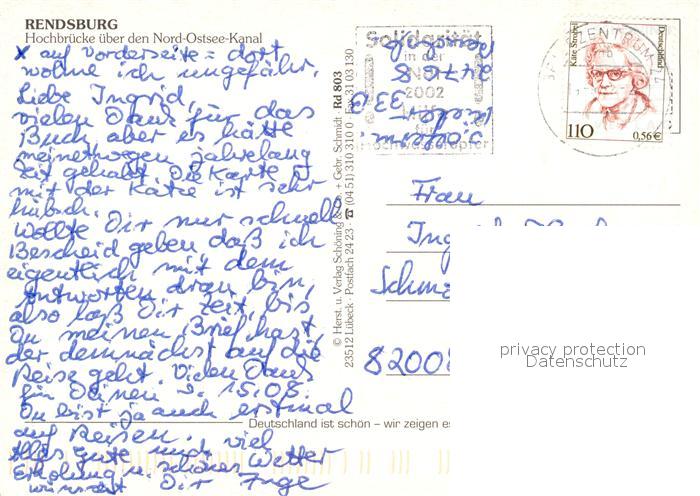 RENDSBURG
Hochbrücke über den Nord-Ostsee-Kanal
x auf Vorderseite = dort
wohne ich ungefähr.
Liebe Ingrid,
vielen Dank für das
Buch aber es hätte
meinetwegen jahrelang
Zeit gehabt. Die Karte
mit der Katze ist sehr
hübsch.
Wollte Dir nur schnell
Bescheid geben daß ich
eigentlich mit dem
Antworten dran bin,
also laß Dir Zeit bis
Du meinen Brief hast,
der demnächst auf die
Reise geht. Vielen Dank
für Deinen v. 15.08.
Du bist ja auch erstmal
auf Reisen.
Alles Gute und viel
Erholung u. schönes Wetter
wünscht Dir Inge
© Herst. u. Verlag Schöning & Co. + Gebr. Schmidt Rd 803
23512 Lübeck · Postfach 24 23 · ☎ (04 51) 310 310 · Fax 31 03 130
Solidarität
in der
Not
2002
Hilfe
für
Hochwasseropfer
24768
Rendsburg
ZENTRUM
Käte Strobel
Deutschland
110
0,56 €
Frau
Deutschland ist schön – wir zeigen es
privacy protection
Datenschutz